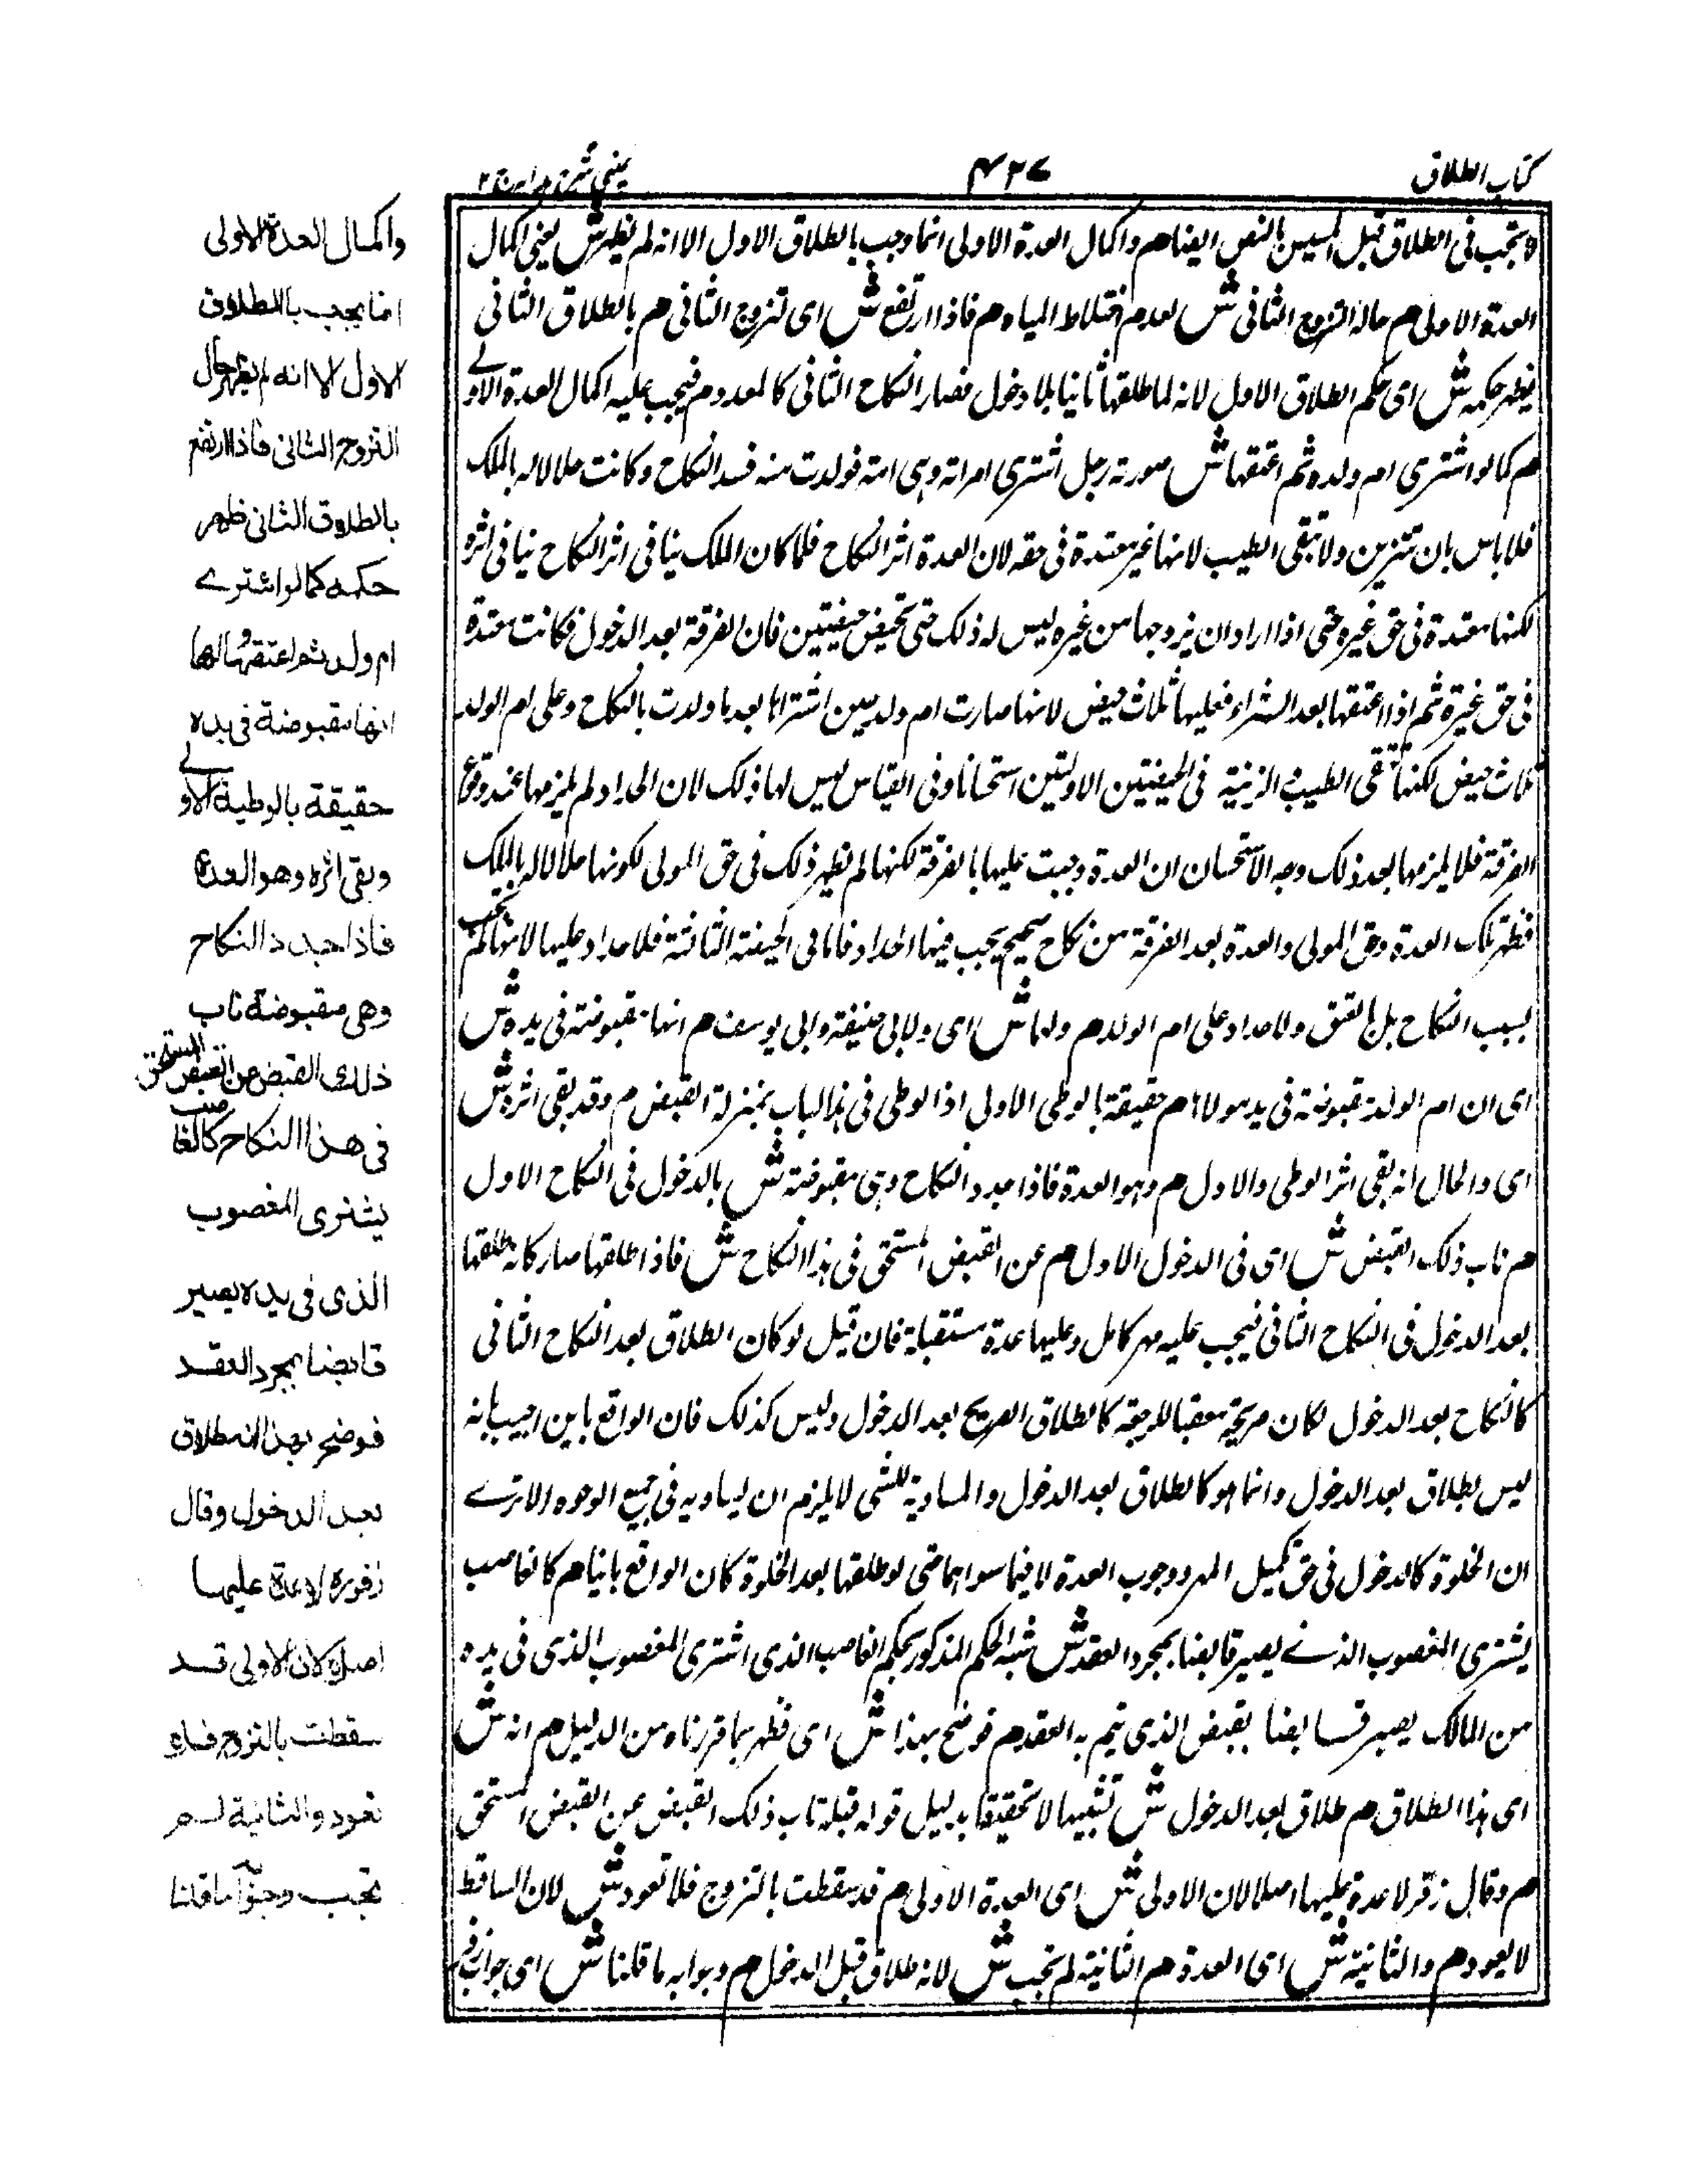 كتاب الطلاق
٤٢٧
عيني شرح هدايه ج ٢
ولا تجب فى الطلاق قبل المسيس بالنص ايضا هم واكمال العدة الاولى انما وجب بالطلاق الاول الا انه لم يظهر ش يعنى اكمال
العدة الاولى هم حالة التزوج الثانى ش لعدم اختلاط المياه هم فاذا ارتفع ش اى تزوج الثانى هم بالطلاق الثانى
فيظهر حكمه ش اى حكم الطلاق الاول لانه لما طلقها ثانيا بلا دخول فصار النكاح الثانى كالمعدوم فيجب عليه اكمال العدة الاولى
هم كما لو اشترى ام ولده ثم اعتقها ش صورته رجل اشترى امراته وهى امة فولدت منه فسد النكاح وكانت حلالا له بالملك
فلا باس بان تتزين ولا تتقى الطيب لانها غير معتدة فى حقه لان العدة اثر النكاح فلما كان الملك ينافى اثر النكاح ينافى اثره
لكنها معتدة فى حق غيره حتى اذا اراد ان يزوجها من غيره ليس له ذلك حتى تحيض حيضتين فان الفرقة بعد الدخول فكانت معتدة
فى حق غيره ثم اذا اعتقها بعد الشراء فعليها ثلاث حيض لانها صارت ام ولد حين اشتراها بعد ما ولدت بالنكاح وعلى ام الولد
ثلاث حيض لكنها تتقى الطيب والزينة فى الحيضتين الاوليين استحسانا وفى القياس ليس لها ذلك لان الحداد لم يلزمها عند وقوع
الفرقة فلا يلزمها بعد ذلك وجه الاستحسان ان العدة وجبت عليها بالفرقة لكنها لم تظهر ذلك فى حق المولى لكونها حلالا له بالملك
فظهر تلك العدة وحق المولى والعدة بعد الفرقة من نكاح صحيح يجب فيها الحداد فاما فى الحيضة الثالثة فلا حداد عليها لانها لم تجب
بسبب النكاح بل بالعتق ولا حداد على ام الولد هم ولهما ش اى ولابى حنيفة وابى يوسف هم انها مقبوضة فى يده ش
اى ان ام الولد مقبوضة فى يد مولاها هم حقيقة بالوطى الاولى اذ الوطى فى هذا الباب بمنزلة القبض هم وقد بقى اثره ش
اى والحال انه بقى اثر الوطى والاول هم وهو العدة فاذا جدد النكاح وهى مقبوضة ش بالدخول فى النكاح الاول
هم ناب ذلك القبض ش اى فى الدخول الاول هم عن القبض المستحق فى هذا النكاح ش فاذا طلقها صار كانه طلقها
بعد الدخول فى النكاح الثانى فيجب عليه مهر كامل وعليها عدة مستقبلة فان قيل لو كان الطلاق بعد النكاح الثانى
كالنكاح بعد الدخول لكان صريحة معقبا للرجعة كالطلاق الصريح بعد الدخول وليس كذلك فان الواقع باين اجيب بانه
ليس بطلاق بعد الدخول وانما هو كالطلاق بعد الدخول والمساوية للشى لا يلزم ان يساويه فى جميع الوجوه الا ترے
ان الخلوة كالدخول فى حق تكميل المهر ووجوب العدة لا فيما سواهما حتى لو طلقها بعد الخلوة كان الواقع باينا هم كالغاصب
يشترى المغصوب الذے يصير قابضا بمجرد العقد ش شبه الحكم المذكور بحكم الغاصب الذى اشترى المغصوب الذى فى يده
من المالك يصير قابضا بقبض الذى يتم به العقد هم فوضح بهذا ش اى فظهر بما قررناه من الدليل هم انه ش
اى هذا الطلاق هم طلاق بعد الدخول ش تشبيها لا تحقيقا بدليل قوله قبله ناب ذلك القبض عن القبض المستحق
هم وقال زفر لا عدة عليها اصلا لان الاولى ش اى العدة الاولى هم قد سقطت بالتزوج فلا تعود ش لان الساقط
لا يعود هم والثانية ش اى العدة هم الثانية لم تجب ش لانه طلاق قبل الدخل هم وجوابه ما قلنا ش اى جواب زفر
واكمال العدة الاولى
انما يجب بالطلاق
الاول الا انه لم يظهر حال
التزوج الثانى فاذا ارتفع
بالطلاق الثانى ظهر
حكمه كما لو اشترے
ام ولده ثم اعتقها ولهما
انها مقبوضة فى يده
حقيقة بالوطية الاولى
وبقى اثره وهو العدة
فاذا جدد النكاح
وهى مقبوضة ناب
ذلك القبض عن القبض المستحق
فى هذا النكاح كالغاصب
يشترى المغصوب
الذى فى يده يصير
قابضا بمجرد العقد
فوضح بهذا انه طلاق
بعد الدخول وقال
زفر لا عدة عليها
اصلا لان الاولى قد
سقطت بالتزوج فلا
تعود والثانية لم
تجب وجوابه ما قلنا